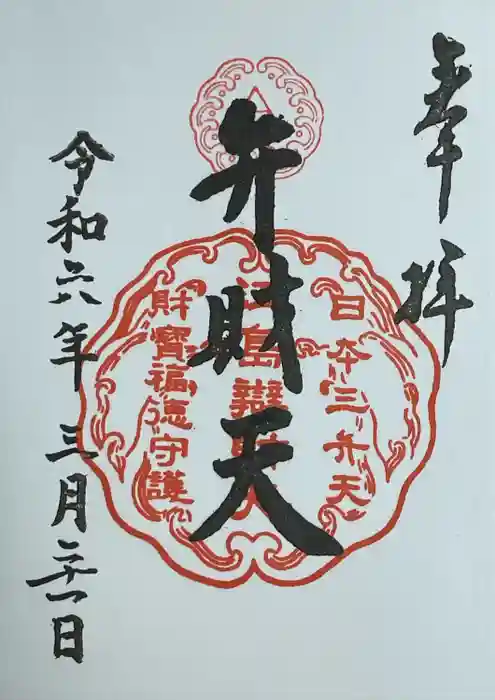 奉拝
日本三弁天
江島辯財天
財寳福徳守護
弁財天
令和六年三月二十一日